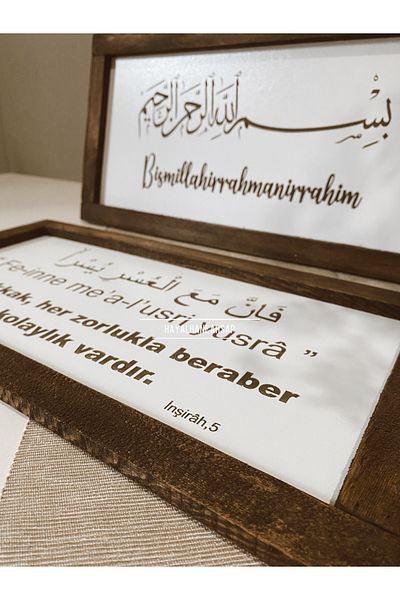 بِسْمِ اللهِ الرَّحْمٰنِ الرَّحِيمِ
Bismillahirrahmanirrahim
فَاِنَّ مَعَ الْعُسْرِ يُسْرًا
“ Fe-inne me'a-l'usri yusrâ ”
her zorlukla beraber
kolaylık vardır.
İnşirâh,5